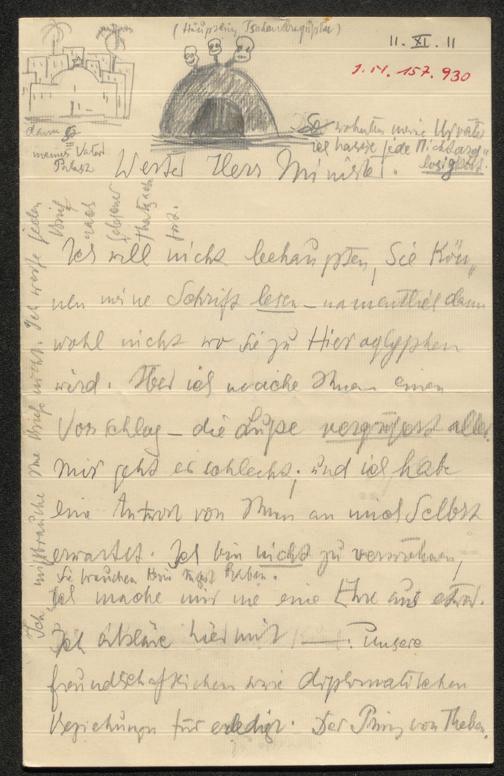 (Häuptling
11. XI. 11
J. N. 157. 930
So wohnten meine Urväter
ich hasse jede
losigkeit
meines Vaters
Palast
Werter Herr Minister.
Ich will nicht behaupten, Sie Kön„
nen meine Schrift lesen – namentlich dann
wohl nicht wo sie zu Hieroglyphen
wird. Aber ich mache Ihnen einen
Vorschlag – die Lupe vergrößert alles.
Mir geht es schlecht; und ich habe
eine Antwort von Ihnen an mich Selbst
erwartet. Ich bin nicht zu verwöhnen,
Sie brauchen Angst haben.
Ich mache mir nie eine Ehre aus etwas.
Ich erkläre hiermit —. Unsere
freundschaftlichen wie diplomatischen
Beziehungen für erledigt. Der Prinz von Theben.
Ich mißbrauche Ihre Briefe nicht. Ich werfe jeden
Brief
nach
fort.